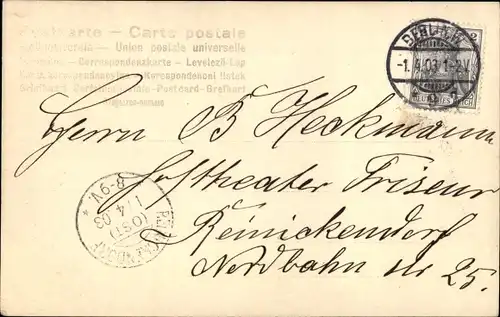 Postkarte – Carte postale
Union postale universelle
Correspondenzkarte – Levelező-Lap
Korespondenční lístek
Postcard – Brefkort
BERLIN
-1. 4. 03. 1-2V.
Herrn B Heckmann
Hoftheater Friseur
Reinickendorf
Nordbahn str 25.
REINICKENDORF
(OST)
1/4 03
8-9V.